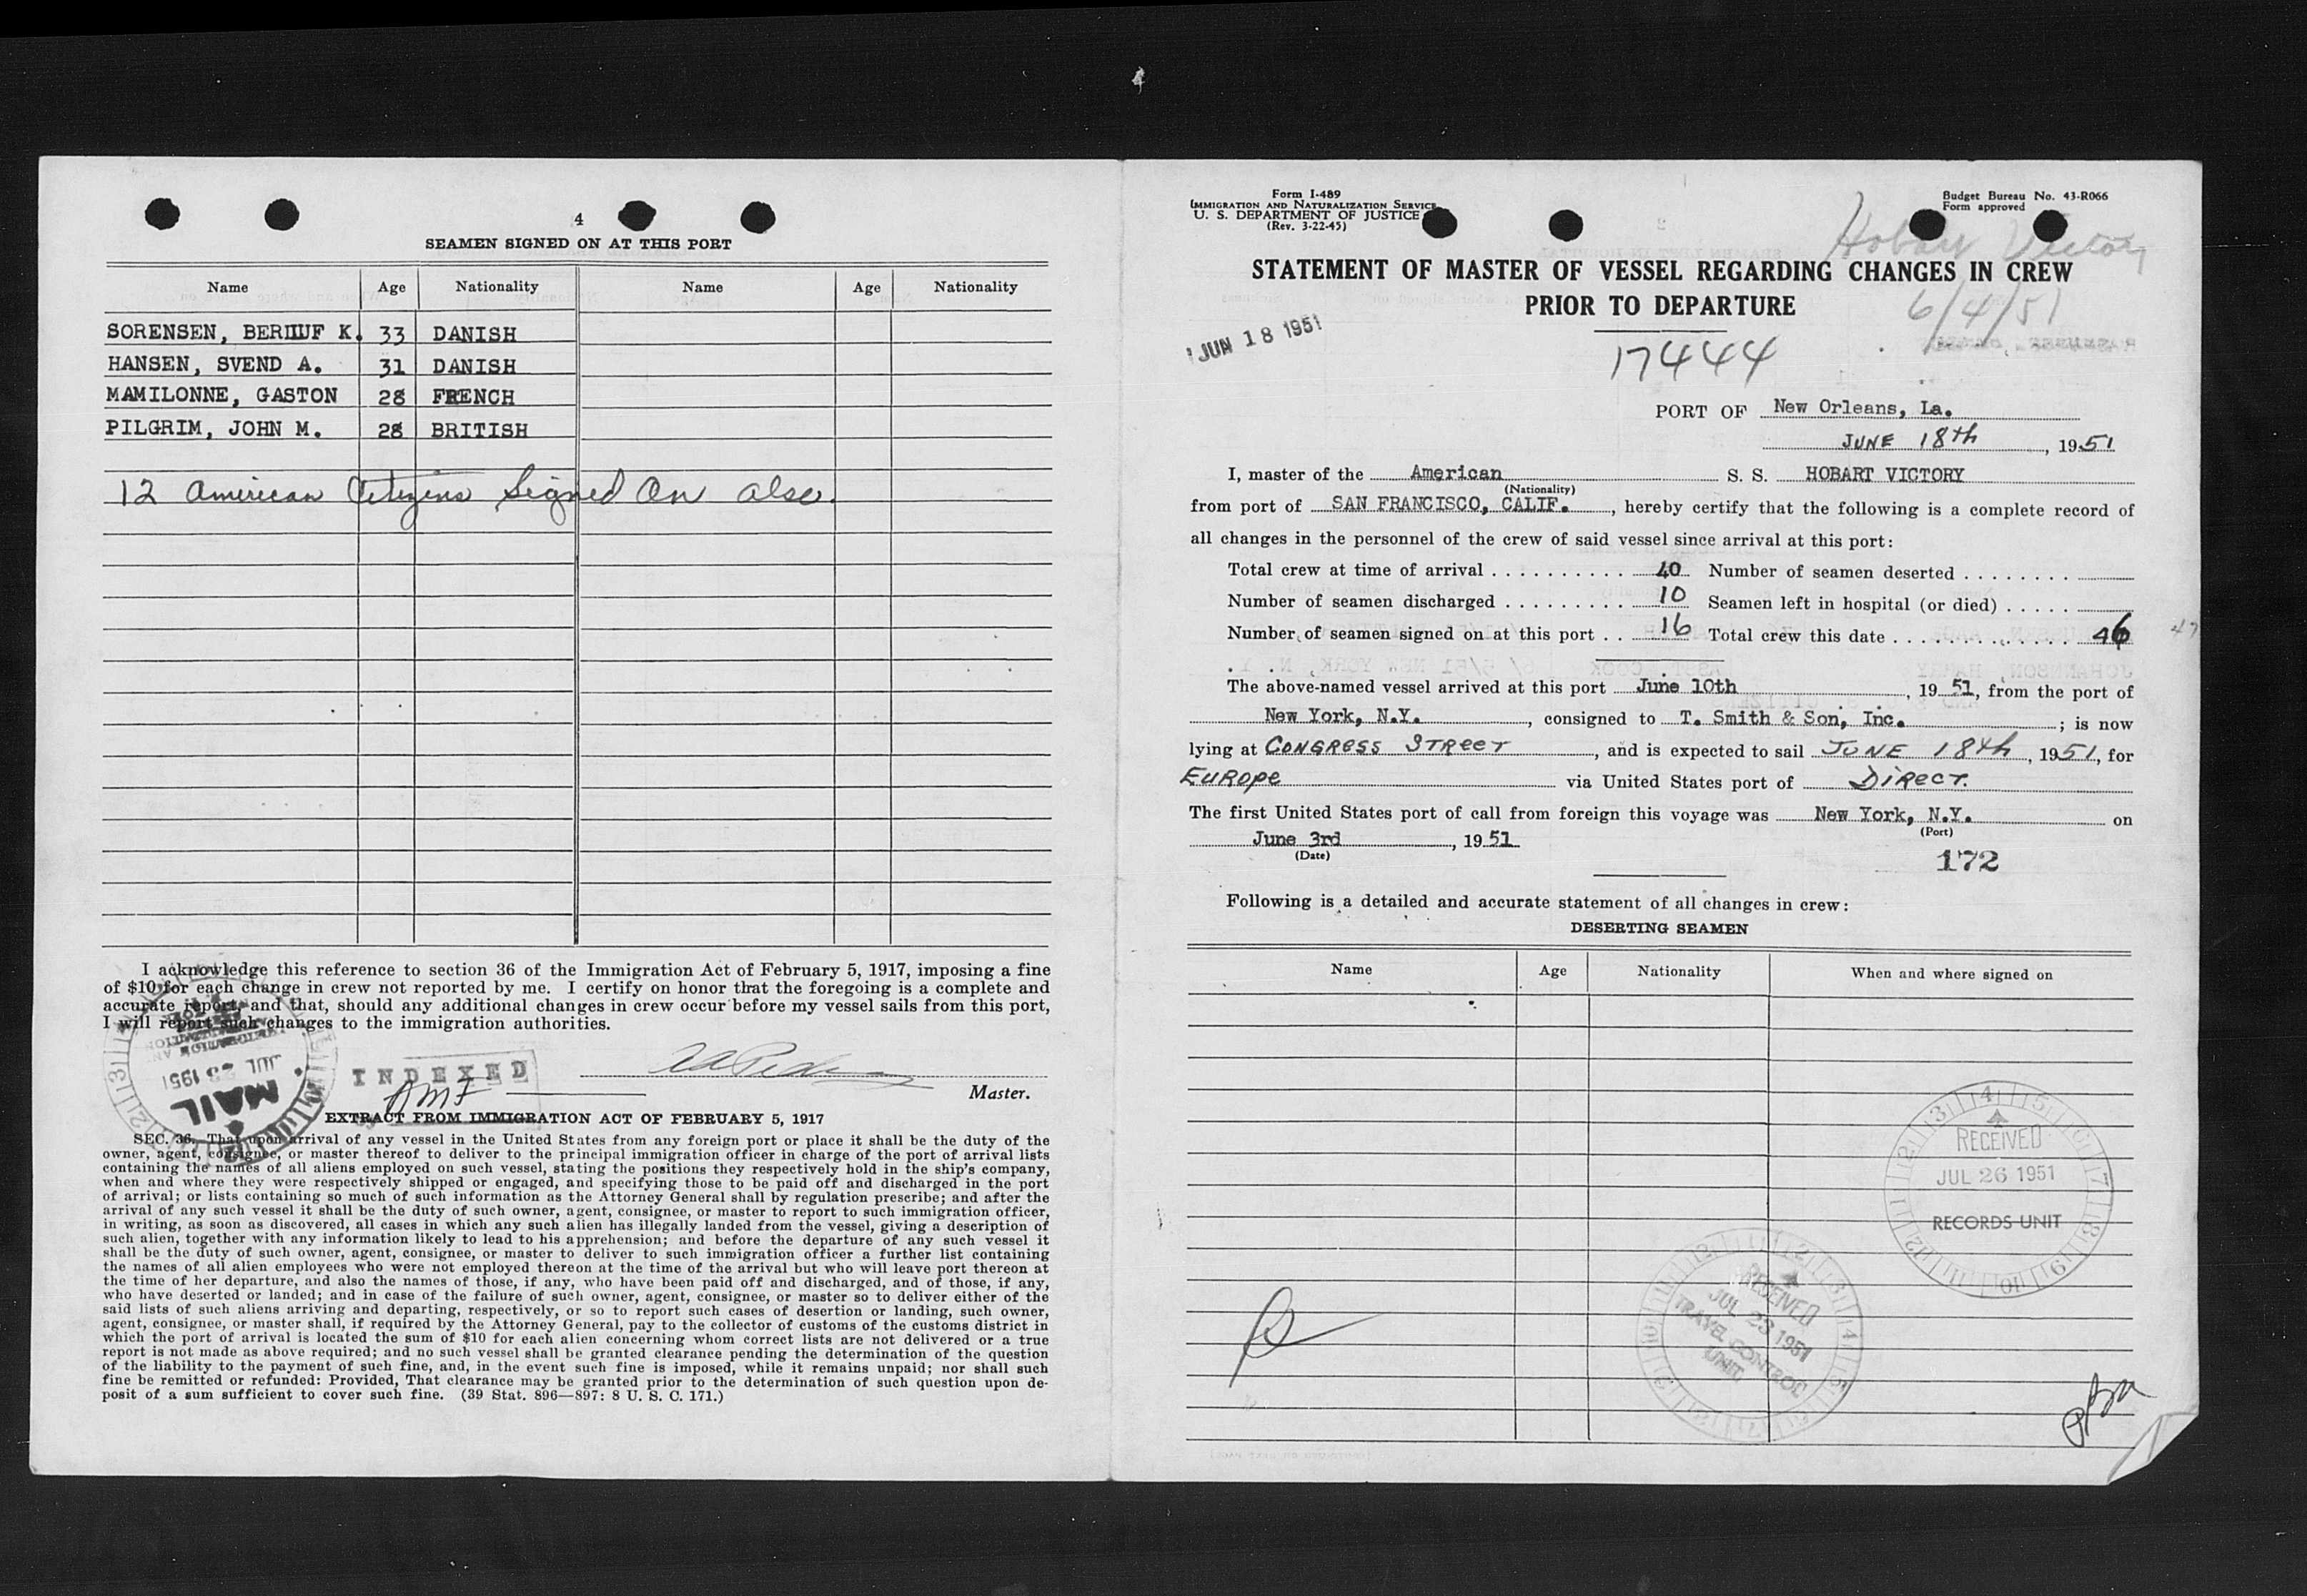 4
SEAMEN SIGNED ON AT THIS PORT
Name Age Nationality Name Age Nationality
SORENSEN, K. 33 DANISH
HANSEN, SVEND A. 31 DANISH
MAMILONNE, GASTON 28 FRENCH
PILGRIM, JOHN M. 28 BRITISH
12 American Citizens Signed On also.
I acknowledge this reference to section 36 of the Immigration Act of February 5, 1917, imposing a fine
of $10 for each change in crew not reported by me. I certify on honor that the foregoing is a complete and
accurate report, and that, should any additional changes in crew occur before my vessel sails from this port,
I will report such changes to the immigration authorities.
JUL 23 1951
MAIL
INDEXED
Master.
EXTRACT FROM IMMIGRATION ACT OF FEBRUARY 5, 1917
SEC. 36. That upon arrival of any vessel in the United States from any foreign port or place it shall be the duty of the
owner, agent, consignee, or master thereof to deliver to the principal immigration officer in charge of the port of arrival lists
containing the names of all aliens employed on such vessel, stating the positions they respectively hold in the ship's company,
when and where they were respectively shipped or engaged, and specifying those to be paid off and discharged in the port
of arrival; or lists containing so much of such information as the Attorney General shall by regulation prescribe; and after the
arrival of any such vessel it shall be the duty of such owner, agent, consignee, or master to report to such immigration officer,
in writing, as soon as discovered, all cases in which any such alien has illegally landed from the vessel, giving a description of
such alien, together with any information likely to lead to his apprehension; and before the departure of any such vessel it
shall be the duty of such owner, agent, consignee, or master to deliver to such immigration officer a further list containing
the names of all alien employees who were not employed thereon at the time of the arrival but who will leave port thereon at
the time of her departure, and also the names of those, if any, who have been paid off and discharged, and of those, if any,
who have deserted or landed; and in case of the failure of such owner, agent, consignee, or master so to deliver either of the
said lists of such aliens arriving and departing, respectively, or so to report such cases of desertion or landing, such owner,
agent, consignee, or master shall, if required by the Attorney General, pay to the collector of customs of the customs district in
which the port of arrival is located the sum of $10 for each alien concerning whom correct lists are not delivered or a true
report is not made as above required; and no such vessel shall be granted clearance pending the determination of the question
of the liability to the payment of such fine, and, in the event such fine is imposed, while it remains unpaid; nor shall such
fine be remitted or refunded: Provided, That clearance may be granted prior to the determination of such question upon de-
posit of a sum sufficient to cover such fine. (39 Stat. 896—897: 8 U. S. C. 171.)
Form I-489
IMMIGRATION AND NATURALIZATION SERVICE
U. S. DEPARTMENT OF JUSTICE
(Rev. 3-22-45)
Budget Bureau No. 43-R066
Form approved
Hobart Victory
STATEMENT OF MASTER OF VESSEL REGARDING CHANGES IN CREW
PRIOR TO DEPARTURE
6/4/51
JUN 18 1951
17444
PORT OF New Orleans, La.
JUNE 18th, 1951
I, master of the American S. S. HOBART VICTORY
(Nationality)
from port of SAN FRANCISCO, CALIF., hereby certify that the following is a complete record of
all changes in the personnel of the crew of said vessel since arrival at this port:
Total crew at time of arrival 40 Number of seamen deserted
Number of seamen discharged 10 Seamen left in hospital (or died)
Number of seamen signed on at this port 16 Total crew this date 46 47
The above-named vessel arrived at this port June 10th, 1951, from the port of
New York, N.Y., consigned to T. Smith & Son, Inc.; is now
lying at CONGRESS STREET, and is expected to sail JUNE 18th, 1951, for
EUROPE via United States port of DIRECT.
The first United States port of call from foreign this voyage was New York, N.Y. on
(Port)
June 3rd, 1951
(Date)
172
Following is a detailed and accurate statement of all changes in crew:
DESERTING SEAMEN
Name Age Nationality When and where signed on
RECEIVED
JUL 26 1951
RECORDS UNIT
RECEIVED
JUL 23 1951
TRAVEL CONTROL
UNIT